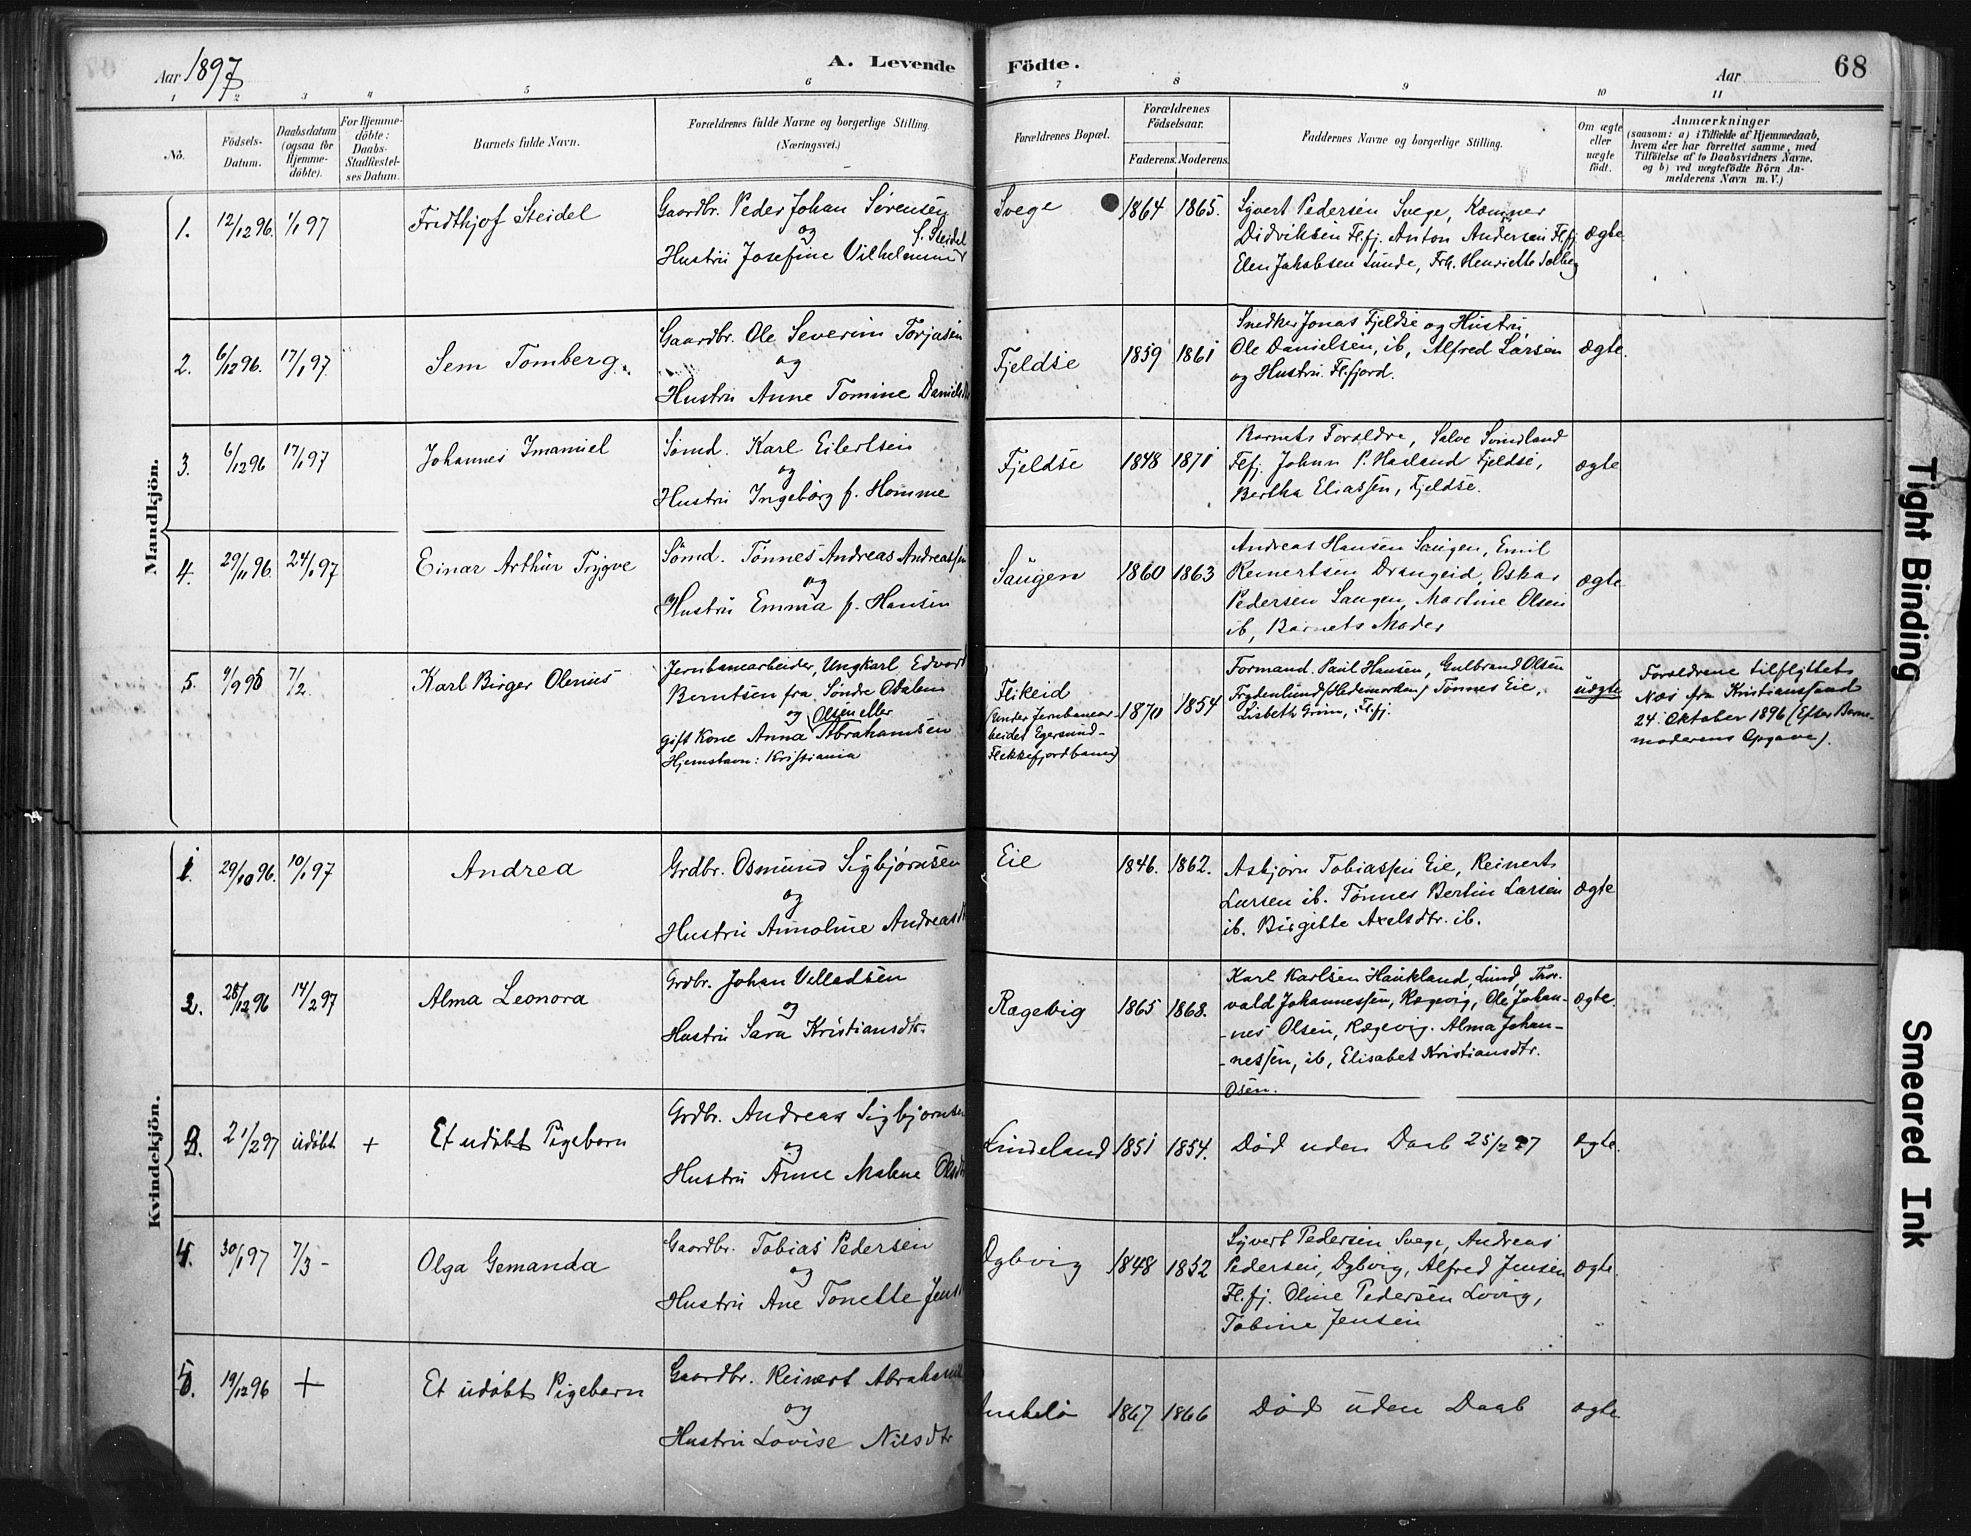 Aar 1897
A. Levende Födte.
Aar
68
1 2 3 4 5 6 7 8 9 10 11
No.
Födsels-Datum.
Daabsdatum (ogsaa for Hjemme-döbte).
For Hjemme-döbte: Daabs-Stadfæstel-ses Datum.
Barnets fulde Navn.
Forældrenes fulde Navne og borgerlige Stilling.
(Næringsvei.)
Forældrenes Bopæl.
Forældrenes Födselsaar.
Faderens. Moderens.
Faddernes Navne og borgerlige Stilling.
Om ægte eller uægte födt.
Anmærkninger
(saasom: a) i Tilfælde af Hjemmedaab,
hvem der har forrettet samme, med
Tilföielse af to Daabsvidners Navne.
og b) ved uægtefödte Börn An-
melderens Navn m. V.)
Mandkjön.
1. 12/12 96. 1/1 97 Fridthjof Steidel
Gaardbr. Peder Johan Sørensen
og S. Steidel
Hustru Josefine Vilhelmine
Svege 1864 1865.
Syvert Pedersen Svege, Kæmner
Didriksen Fl.fj. Anton Andersen Fl.fj.
Elen Jakobsen Lunde, Frk. Henriette Solberg
ægte
2. 6/12 96. 17/1 97 Sem Tomberg.
Gaardbr. Ole Severin Torjusen
og
Hustru Anne Tomine Daniels
Fjeldse 1859 1861
Snedker Jonas Fjeldse og Hustru,
Ole Danielsen, ib, Alfred Larsen
og Hustru Fl.fjord.
ægte.
3. 6/12 96 17/1 97 Johannes Imanuel
Sømd. Karl Eilertsen
og
Hustru Ingeborg f. Homme
Fjeldse 1848 1871
Barnets Forældre, Salve Svindland
Flfj. Johan P. Haaland Fjeldse,
Bertha Eliassen, Fjeldse.
ægte
4. 29/11 96. 24/1 97 Einar Arthur Trygve
Sømd. Tønnes Andreas Andreassen
og
Hustru Emma f. Hansen
Saugen 1860 1863
Andreas Hansen Saugen, Emil
Reinertsen Drangeid, Oskar
Pedersen Saugen, Martine Olsen
ib, Barnets Moder
ægte
5. 9/9 96 7/2 Karl Birger Olenius
Jernbanearbeider, Ungkarl Edvard
Berntsen fra Søndre Odalen
og Olsen eller
gift Kone Anna Abrahamsen
Hjemstavn: Kristiania
Flikeid
(under Jernbanear-
beidet Egersund-
Flekkefjordbane)
1870 1854
Formand Paul Hansen, Gulbrand Olsen
Frydenlund (Hedemarken) Tønnes Eie,
Lisbeth Grim, Fl.fj.
uægte
Forældrene tilflyttet
Næs fra Kristianssand
24. Oktober 1896 (Efter Barne-
moderens Opgave).
Kvindekjön.
1. 29/10 96. 10/1 97 Andrea
Grdbr. Osmund Sigbjørnsen
og
Hustru Annoline Andreasdt
Eie 1846. 1862.
Asbjørn Tobiassen Eie, Reinert
Larsen ib. Tønnes Bertin Larsen
ib. Birgitte Axelsdtr. ib.
ægte
2. 28/12 96 14/2 97 Alma Leonora
Grdbr. Johan Velladsen
og
Hustru Sara Kristiansdtr
Rægevig 1865 1868.
Karl Karlsen Haukland, Lund, Thor-
vald Johannessen, Rægevig, Ole Johan-
-nes Olsen, Rægevig. Alma Johan-
-nessen, ib, Elisabet Kristiansdtr.
Osen.
ægte.
3. 21/2 97 udøbt + Et udøbt Pigebarn
Grdbr. Andreas Sigbjørnsen
og
Hustru Anne Malene Olsdt
Lindeland 1851 1854.
Død uden Daab 25/2 97
ægte.
4. 30/1 97 7/3 - Olga Gemanda
Gaardbr. Tobias Pedersen
og
Hustru Ane Tonette Jens
Dybvig 1848 1852
Syvert Pedersen Svege, Andreas
Pedersen, Dybvig, Alfred Jensen
Fl.fj. Oline Pedersen Lovig,
Tobine Jensen
ægte.
5. 19/12 96 + Et udøbt Pigebarn
Gaardbr. Reinert Abraham
og
Hustru Lovise Nilsdtr
1867 1866
Død uden Daab
ægte
Tight Binding
Smeared Ink